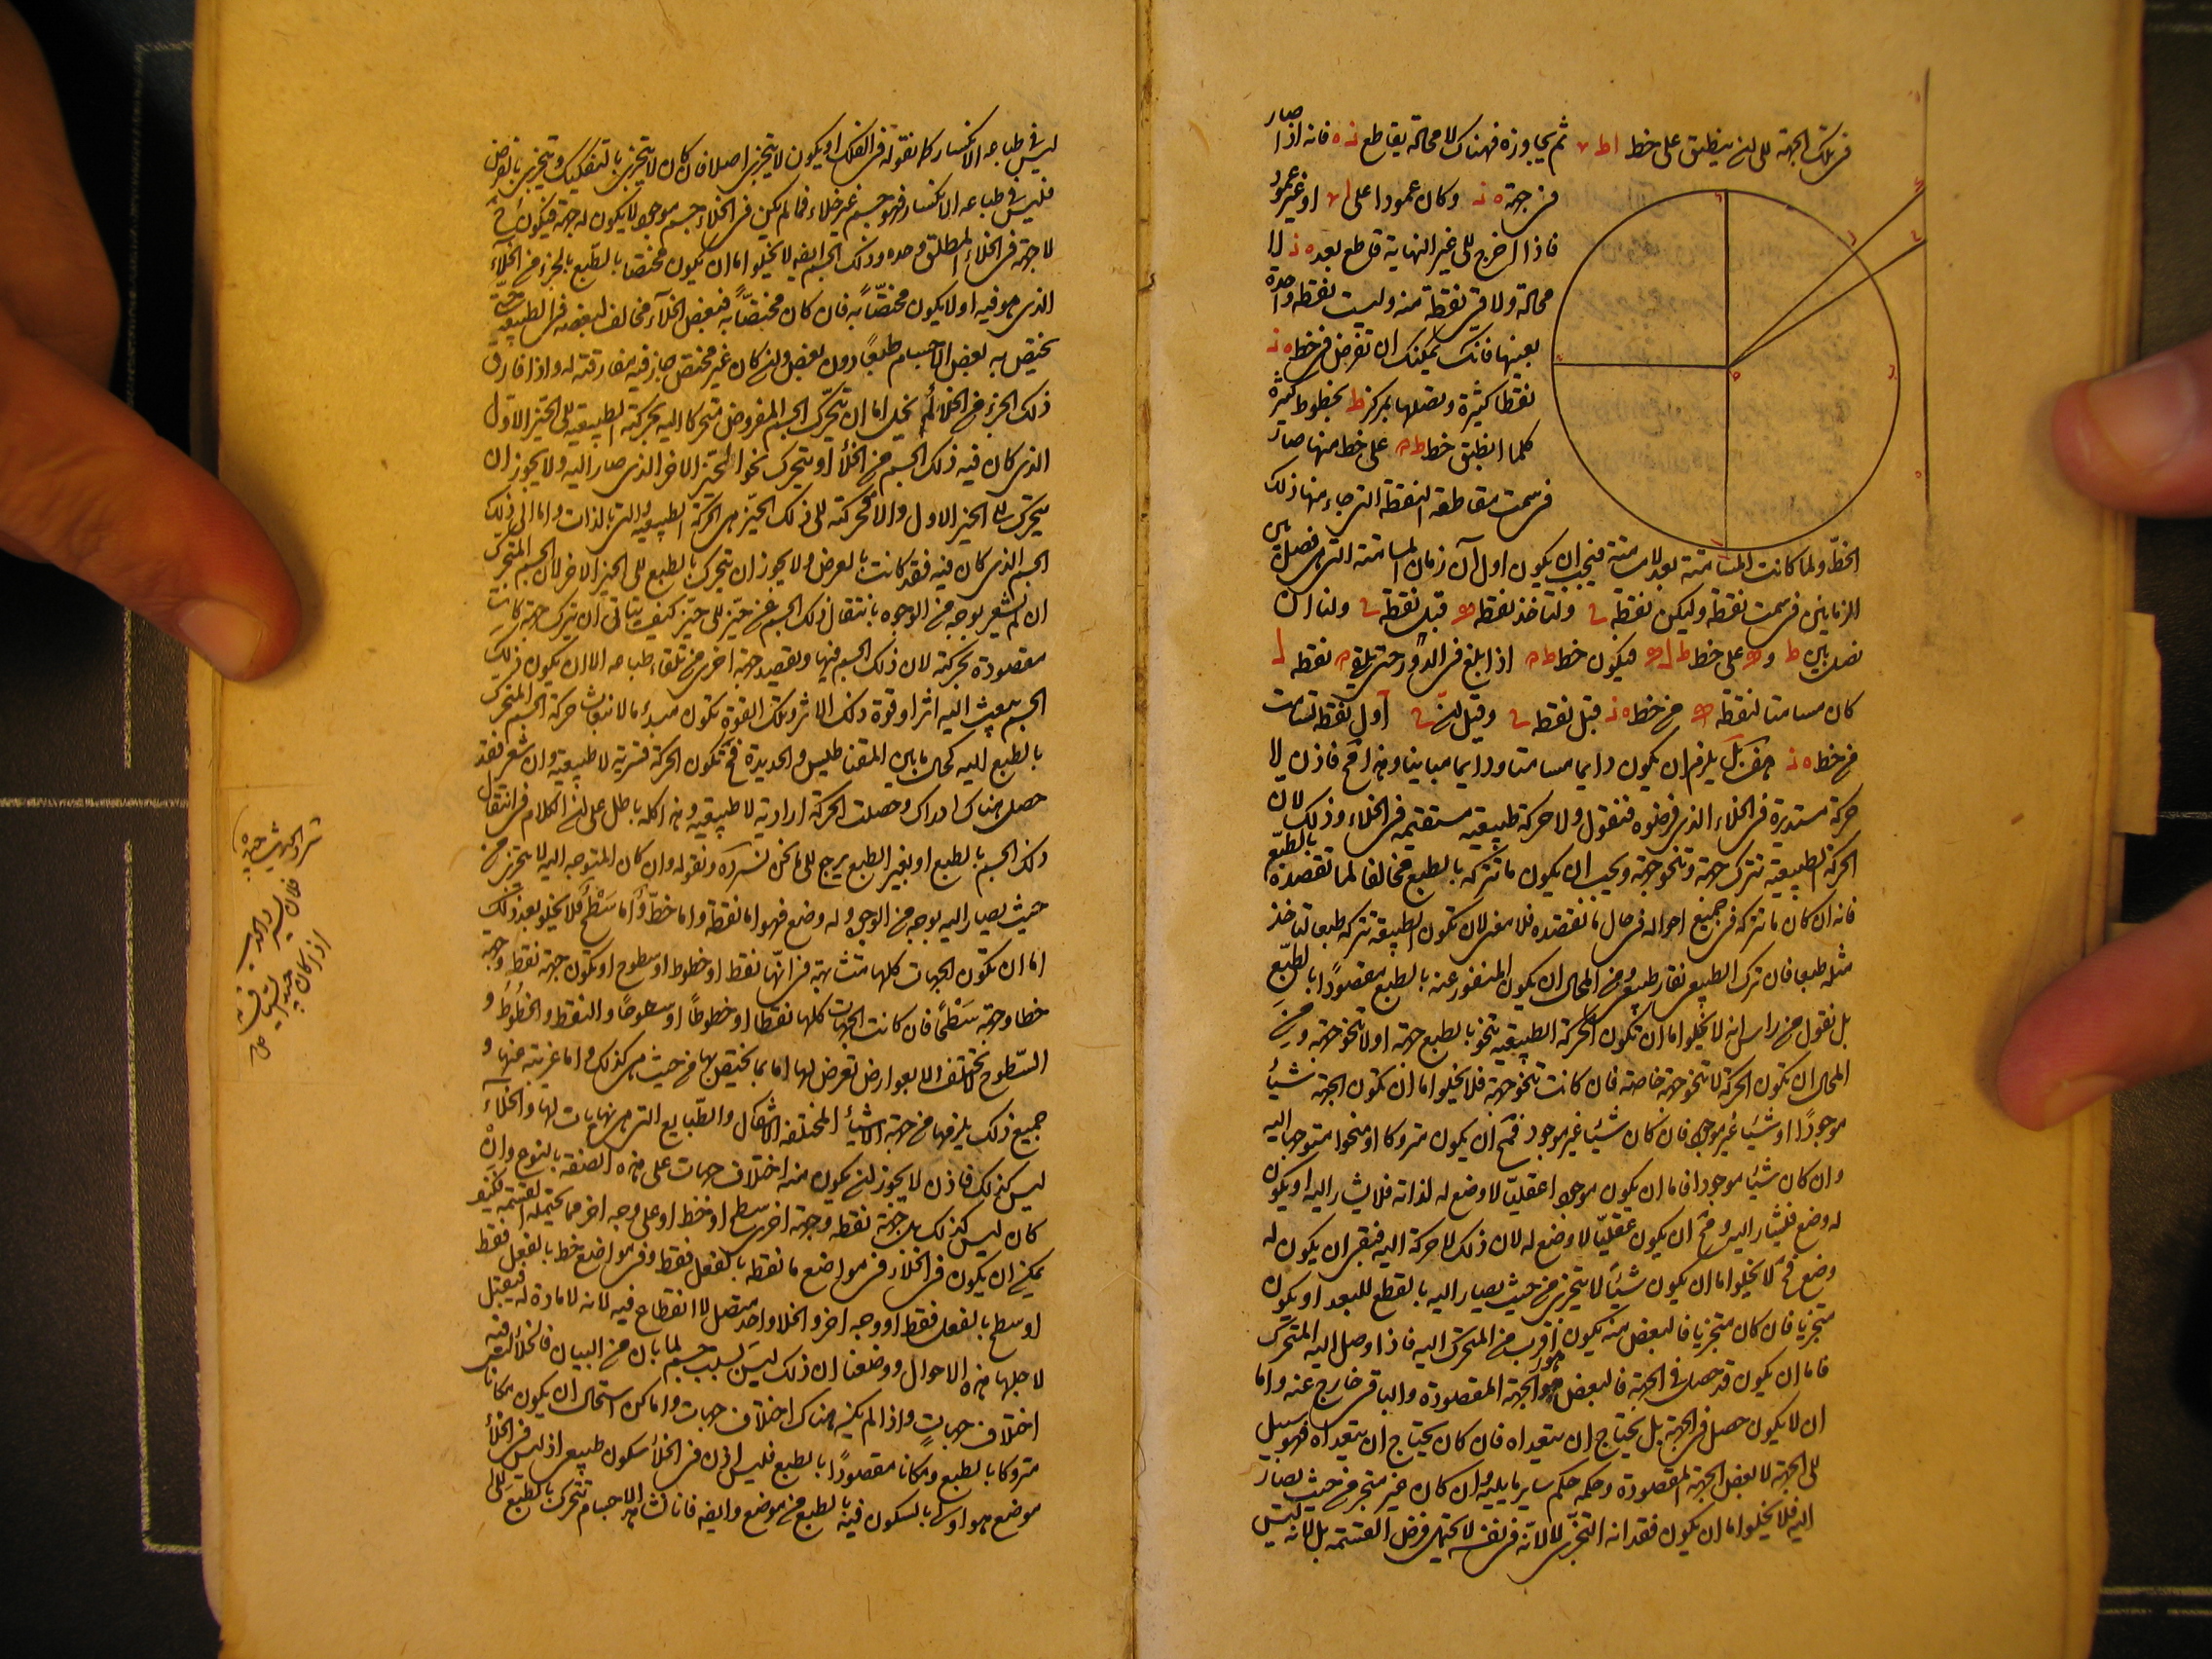 فى تلك الجهة الى ان ينطبق على خط اط ثم يجاوزه فهناك لا محالة يقاطع ه ز فانه اذا صار
فى جهة ه ز وكان عمودا على ا او غير عمود
فاذا اخرج الى غير النهاية قاطع بعد ه ز لا
محالة ولا فى نقطة منه وليست نقطة واحدة
بعينها فانك يمكنك ان تفرض فى خط ه ز
نقطا كثيرة وتصلها بمركز ط بخطوط كثيرة
كلما انطبق خط ط م على خط منها صار
فى سمت مقاطعة النقطة التى جاء منها ذلك
الخط ولما كانت المسامتة بعد لا مسامتة فيجب ان يكون اول آن زمان المسامتة التى هى فصل بين
الزمانين فى سمت نقطة وليكن نقطة ولنأخذ نقطة قبل نقطة ولنا ان
نصل بين ط و على خط ط ل فيكون خط ط م اذا بلغ فى الدور حتى يلقى م نقطة ل
كان مسامتا لنقطة من خط ه ز قبل نقطة وقيل ان اول نقطة تسامت
من خط ه ز هف بل يلزم ان يكون دايما مسامتا ودايما مباينا وهذا مح فاذن لا
حركة مستديرة فى الخلاء الذى فرضوه فنقول ولا حركة طبيعيه مستقيمه فى الخلاء وذلك لان
الحركة الطبيعيه تترك جهة وتنحو جهة ويجب ان يكون ما تتركه بالطبع مخالفا لما تقصده بالطبع
فانه ان كان ما تتركه فى جميع احواله فى حال ما تقصده فلا معنى لان تكون الطبيعة تترك طبعا لتاخذ
مثله طبعا فان ترك الطبيعى نفار طبيعى ومن المحال ان يكون المنفور عنه بالطبع مقصودا بالطبع
بل نقول من راس انه لا يخلوا اما ان تكون الحركة الطبيعيه تنحو بالطبع جهة او لا تنحو جهة ومن
المحال ان تكون الحركة لا تنحو جهة خاصة فان كانت تنحو جهة فلا يخلوا اما ان تكون الجهة شيئا
موجودا او شيئا غير موجود فان كان شيئا غير موجود فمح ان يكون متروكا او منحوا متوجها اليه
وان كان شيئا موجودا فاما ان يكون موجودا عقليا لا وضع له لذاته فلا يشار اليه او يكون
له وضع فيشار اليه ومح ان يكون عقليا لا وضع له لان ذلك لا حركة اليه فبقى ان يكون له
وضع فح لا يخلوا اما ان يكون شيئا لا يتجزى من حيث يصار اليه بالقطع للبعد او يكون
متجزيا فان كان متجزيا فالبعض منه يكون اقرب من المتحرك اليه فاذا وصل اليه المتحرك
فاما ان يكون قد حصل فى الجهة فالبعض هو الجهة المقصودة والباقى خارج عنه واما
ان لا يكون حصل فى الجهة بل يحتاج ان يتعداه فان كان يحتاج ان يتعداه فهو سبيل
الى الجهة لا بعض الجهة المقصودة وحكمه حكم ساير ما يليه وان كان غير متجز من حيث يصار
اليه فلا يخلوا اما ان يكون فقدانه التجزى لا لانه فى نفسه لا يحتمل فرض القسمة بل لانه ليس
ليس فى طباعه الانكسار كما نقوله فى الفلك او يكون لا يتجزى اصلا فان كان لا يتجزى بالتفكيك ويتجزى بالفرض
فليس فى طباعه الانكسار فهو جسم غير خلاء فما لم يكن فى الخلاء جسم موجود لا يكون له جهة فيكون ح
لا جهة فى الخلاء المطلق وحده وذلك الجسم ايضه لا يخلوا اما ان يكون مختصا بالطبع بالجزء من الخلاء
الذى هو فيه او لا يكون مختصا به فان كان مختصا به فبعض الخلاء مخالف لبعضه فى الطبيعه حتى
يختص به بعض الاجسام طبعا دون بعض وان كان غير مختص جاز فيه مفارقته له واذا فارق
ذلك الجزء من الخلاء لم يخل اما ان يتحرك الجسم المفروض متحركا اليه بحركته الطبيعيه الى الحيز الاول
الذى كان فيه ذلك الجسم من الخلاء او يتحرك نحو الحيز الاخر الذى صار اليه ولا يجوز ان
يتحرك الى الحيز الاول والا فحركته الى ذلك الحيز هى الحركة الطبيعيه والتى بالذات واما الى ذلك
الجسم الذى كان فيه فقد كانت بالعرض ولا يجوز ان يتحرك بالطبع الى الحيز الاخر لان الجسم المتحرك
ان لم يشعر بوجه من الوجوه بانتقال ذلك الجسم عن حيز الى حيز كيف يتاتى ان يترك جهة كانت
مقصودة بحركته لان ذلك الجسم فيها ويقصد جهة اخرى من تلقاء طباعه الا ان يكون ذلك
الجسم يبعث اليه اثرا وقوة ذلك الاثر وتلك القوة تكون مبدء ما لانبعاث حركة الجسم المتحرك
بالطبع اليه كحال ما بين المقناطيس والحديدة فح تكون الحركة قسرية لا طبيعيه وان شعر فقد
حصل هناك ادراك وحصلت الحركة ارادية لا طبيعيه وهذا كله باطل على ان الكلام فى انتقال
ذلك الجسم بالطبع او بغير الطبع يرجع الى ما نحن نسرده ونقوله وان كان المتوجه اليه لا يتجزى من
حيث يصار اليه بوجه من الوجوه وله وضع فهو اما نقطة واما خط واما سطح فلا يخلو بعد ذلك
اما ان تكون الجهات كلها متشابهة فى انها نقط او خطوط او سطوح او يكون جهة نقطة وجهة
خطا وجهة سطحا فان كانت الجهات كلها نقطا او خطوطا او سطوحا والنقط والخطوط و
السطوح لا تختلف الا بعوارض تعرض لها اما بما يختص بها من حيث هى كذلك واما غريبة عنها و
جميع ذلك يلزمها من جهة الاشياء المختلفه الاشكال والطبايع التى هى نهايات لها والخلاء
ليس كذلك فاذن لا يجوز ان يكون منه اختلاف جهات على هذه الصفة بالنوع وان
كان ليس كذلك بل جهة نقطة وجهة اخرى سطح او خط او على وجه اخر مما يحتمله القسمة فكيف
يمكن ان يكون فى الخلاء فى مواضع ما نقطة بالفعل فقط وفى مواضع خط بالفعل فقط
او سطح بالفعل فقط او وجه اخر والخلا واحد متصل لا انقطاع فيه لانه لا مادة له فيقبل
لاجلها هذه الاحوال ووضعنا ان ذلك ليس بسبب جسم لما بان من البيان فالخلاء ليس فيه
اختلاف جهات واذا لم يكن هناك اختلاف جهات واماكن استحال ان يكون مكانا
متروكا بالطبع ومكانا مقصودا بالطبع فليس اذن فى الخلاء سكون طبيعى اذ ليس فى الخلاء
موضع هو اولى بالسكون فيه بالطبع من موضع وايضه فانا نشاهد الاجسام تتحرك بالطبع الى